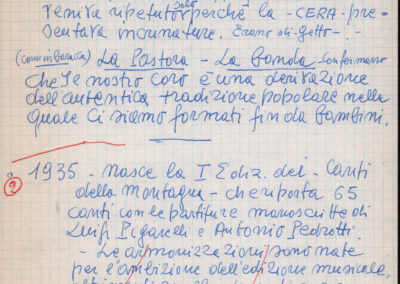 veniva ripetuto solo perché la - CERA - pre-
sentava incrinature. Erano di getto - ! -
(cominciamo) La Pastora - La banda - confermano
che se nostro coro è una derivazione
dell'autentica tradizione popolare nella
quale ci siamo formati fin da bambini.
9 1935 - nasce la I Ediz. dei - Canti
della Montagna - che riporta 65
canti con le partiture manoscritte di
Luigi Pigarelli e Antonio Pedrotti.
- Le armonizzazioni sono nate
per l'ambizione dell'edizione musicale,